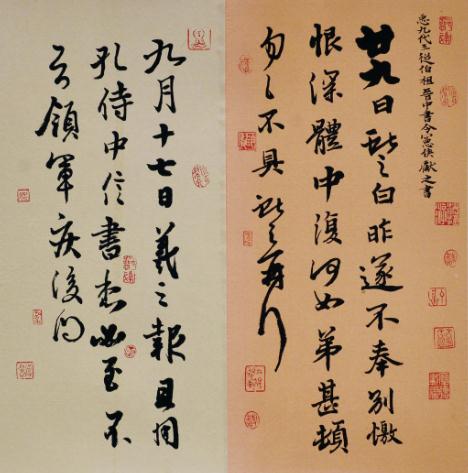 九代三從伯祖晉中書令憲侯獻之書
廿九日獻之白昨遂不奉別悵
恨深體中復何如弟甚頓
匆匆不具獻之再拜
九月十七日羲之報且因
孔侍中信書想必至不
知領軍疾後問